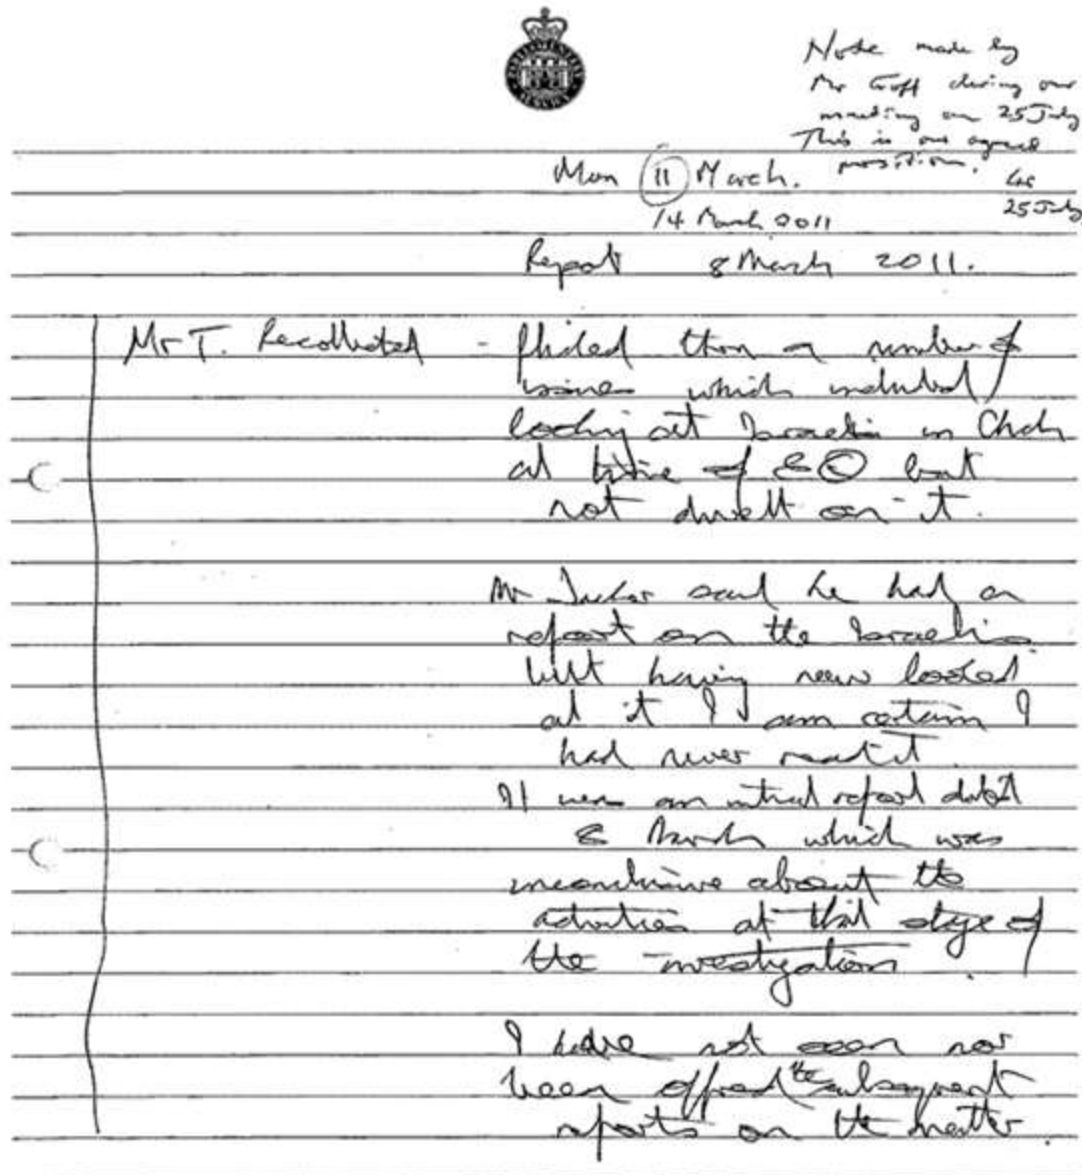 PARLIAMENTARY SERVICE
Note made by
Mr Goff during our
meeting on 25 July
This is our agreed
position.
25 July
Mon 11 March.
14 March 2011
Report 8 March 2011.
Mr T. Recollected - flicked thru a number of
issues which included
looking at Israelis in Chch
at time of but
not dwelt on it.
Mr Tucker said he had a
report on the Israelis
but having now looked
at it I am certain I
had never read it
It was an initial report dated
8 March which was
inconclusive about the
activities at that stage of
the investigation.
I have not seen nor
been offered the subsequent
reports on the matter.